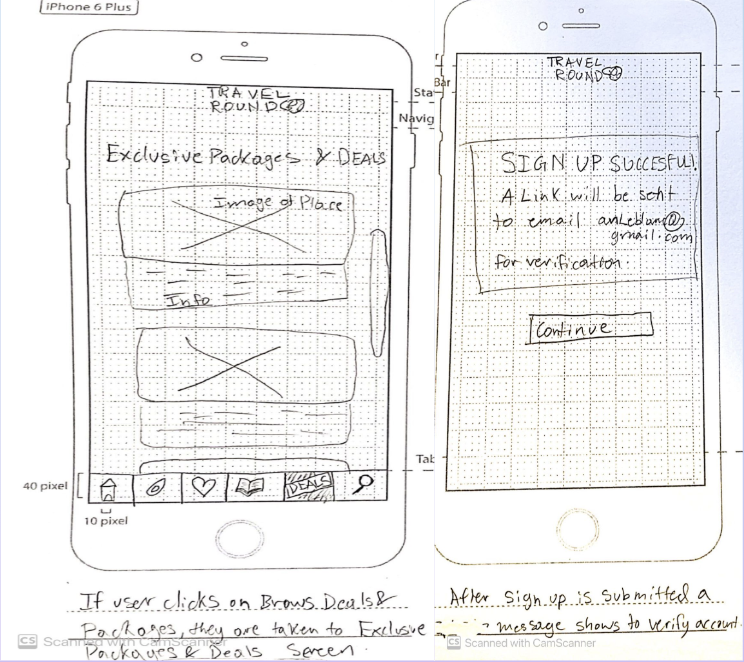 iPhone 6 Plus
TRAVEL
ROUND
Exclusive Packages & DEALS
Image of Place
Info
DEALS
40 pixel
10 pixel
If user clicks on Brows Deals &
Packages, they are taken to Exclusive
Packages & Deals Screen.
CS Scanned with CamScanner
Sta
Bar
Navig
Tab
TRAVEL
ROUND
SIGN UP SUCCESFUL
A Link will be sent
to email anLeblanc@
gmail.com
for verification.
Continue
After sign up is submitted a
message shows to verify account.
CS Scanned with CamScanner